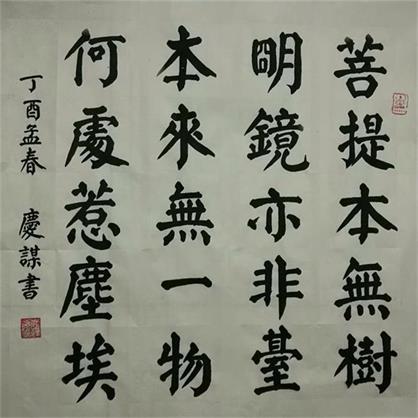 菩提本無樹
明鏡亦非臺
本來無一物
何處惹塵埃
丁酉孟春 慶謀書